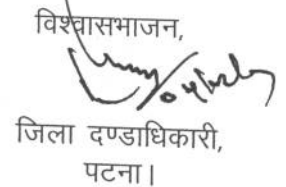 विश्वासभाजन,
जिला दण्डाधिकारी,
पटना।